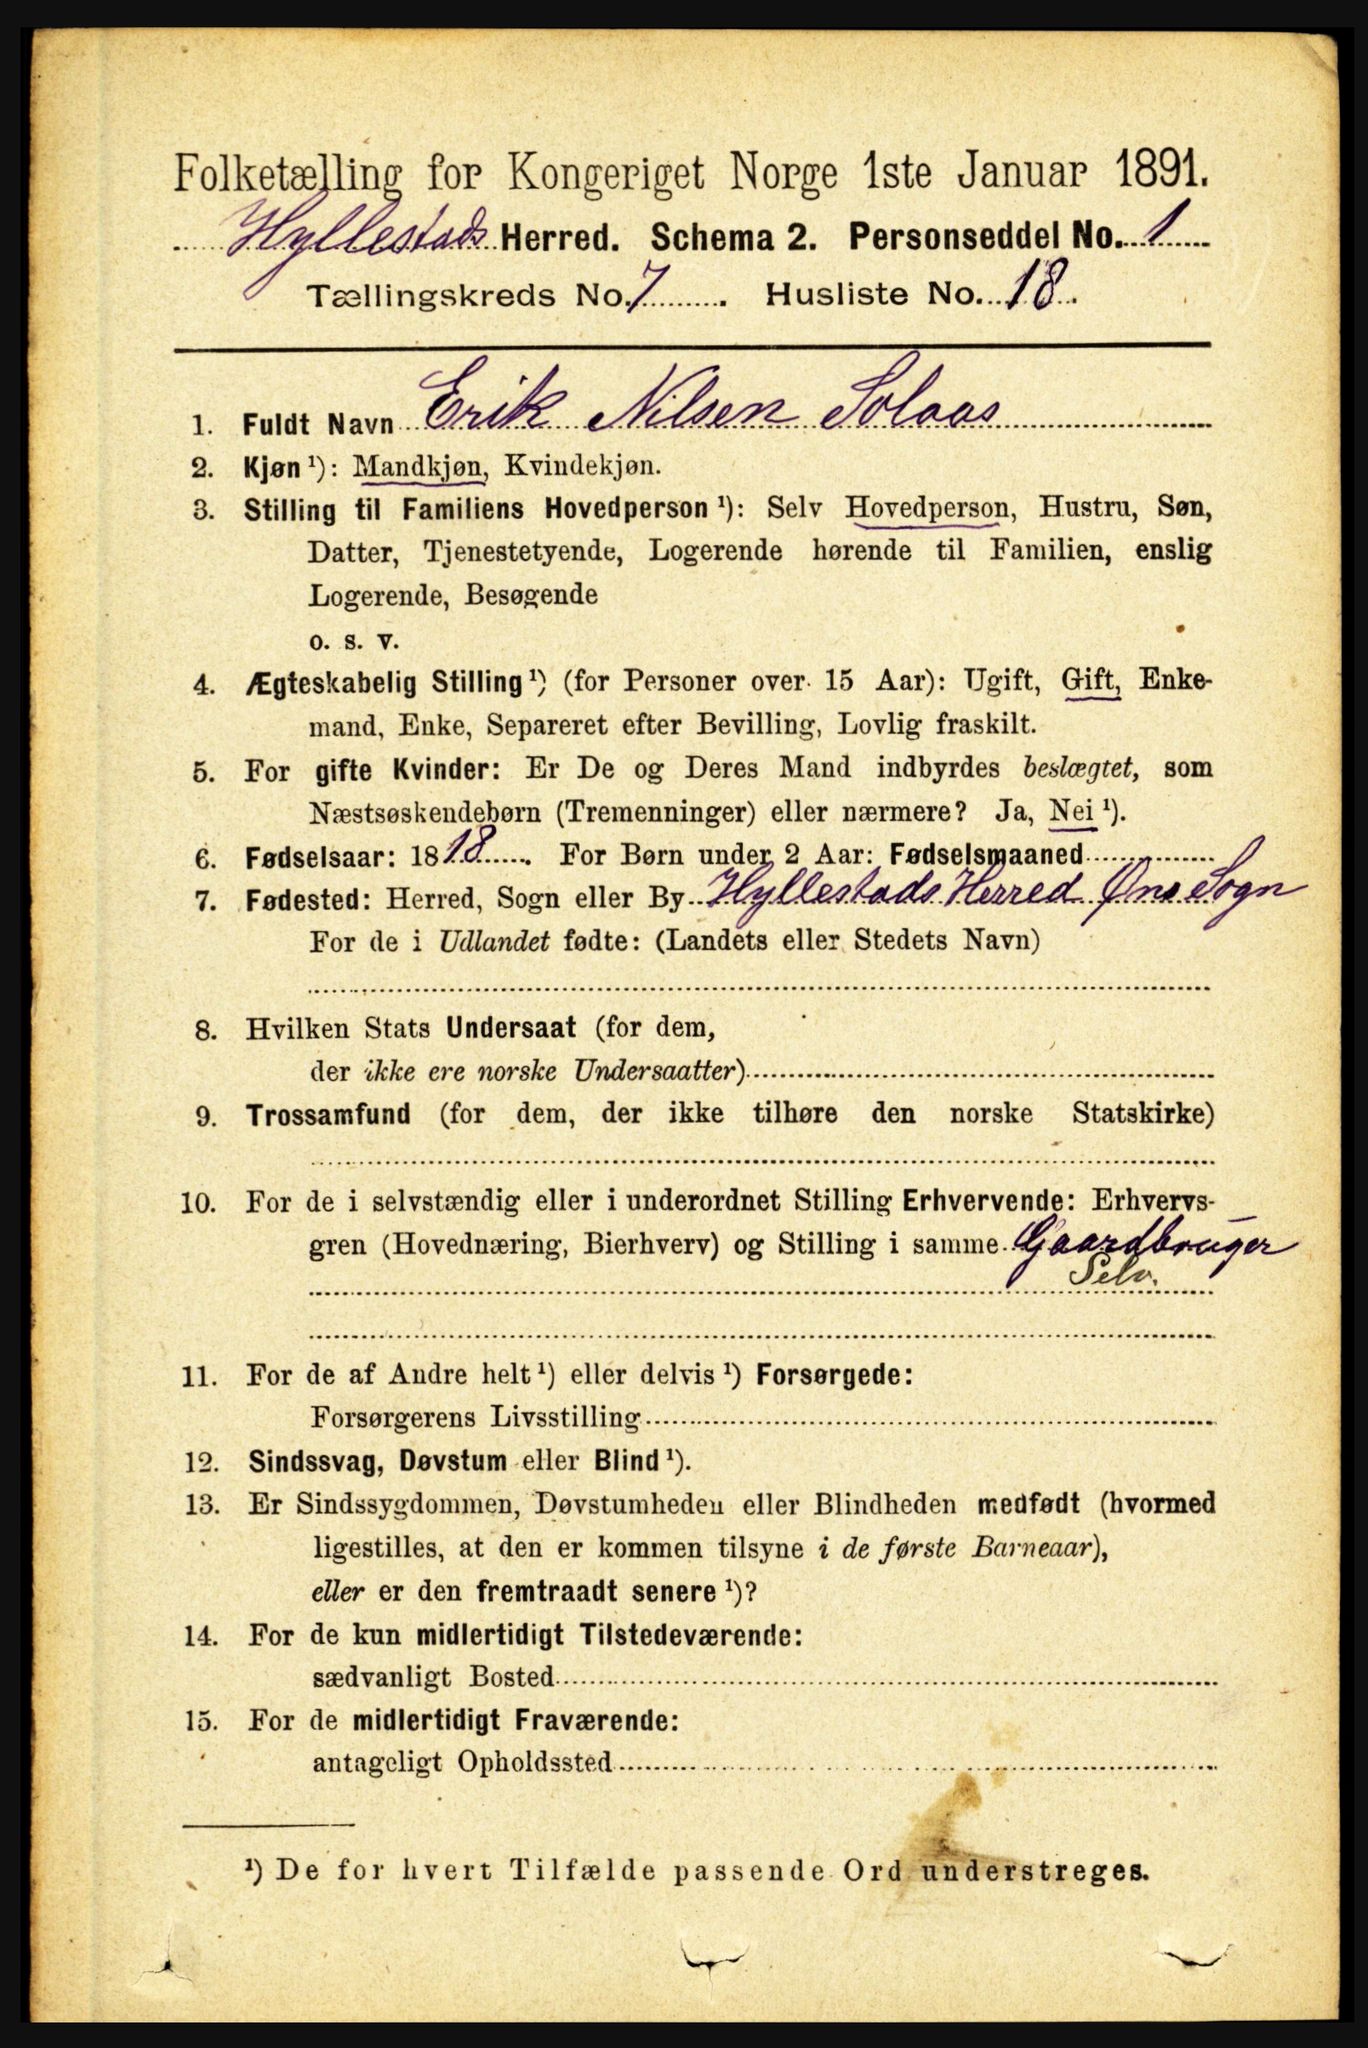 Folketælling for Kongeriget Norge 1ste Januar 1891.
Hyllestads Herred. Schema 2. Personseddel No. 1
Tællingskreds No. 7. Husliste No. 18.
1. Fuldt Navn Erik Nilsen Solaas
2. Kjøn ¹): Mandkjøn, Kvindekjøn.
3. Stilling til Familiens Hovedperson ¹): Selv Hovedperson, Hustru, Søn,
Datter, Tjenestetyende, Logerende hørende til Familien, enslig
Logerende, Besøgende
o. s. v.
4. Ægteskabelig Stilling ¹) (for Personer over 15 Aar): Ugift, Gift, Enke-
mand, Enke, Separeret efter Bevilling, Lovlig fraskilt.
5. For gifte Kvinder: Er De og Deres Mand indbyrdes beslægtet, som
Næstsøskendebørn (Tremenninger) eller nærmere? Ja, Nei ¹).
6. Fødselsaar: 1818. For Børn under 2 Aar: Fødselsmaaned
7. Fødested: Herred, Sogn eller By Hyllestads Herred Øns Sogn
For de i Udlandet fødte: (Landets eller Stedets Navn)
8. Hvilken Stats Undersaat (for dem,
der ikke ere norske Undersaatter)
9. Trossamfund (for dem, der ikke tilhøre den norske Statskirke)
10. For de i selvstændig eller i underordnet Stilling Erhvervende: Erhvervs-
gren (Hovednæring, Bierhverv) og Stilling i samme Gaardbruger
Selv.
11. For de af Andre helt ¹) eller delvis ¹) Forsørgede:
Forsørgerens Livsstilling
12. Sindssvag, Døvstum eller Blind ¹).
13. Er Sindssygdommen, Døvstumheden eller Blindheden medfødt (hvormed
ligestilles, at den er kommen tilsyne i de første Barneaar),
eller er den fremtraadt senere ¹)?
14. For de kun midlertidigt Tilstedeværende:
sædvanligt Bosted
15. For de midlertidigt Fraværende:
antageligt Opholdssted
¹) De for hvert Tilfælde passende Ord understreges.